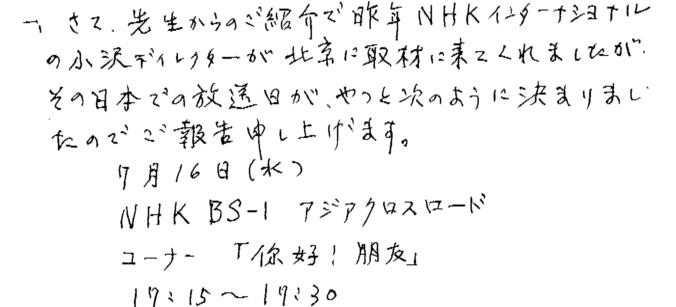 さて、先生からのご紹介で昨年NHKインターナショナル
の小沢ディレクターが北京に取材に来てくれましたが、
その日本での放送日が、やっと次のように決まりまし
たのでご報告申し上げます。
7月16日(水)
NHK BS-1 アジアクロスロード
コーナー 「你好! 朋友」
17:15〜17:30